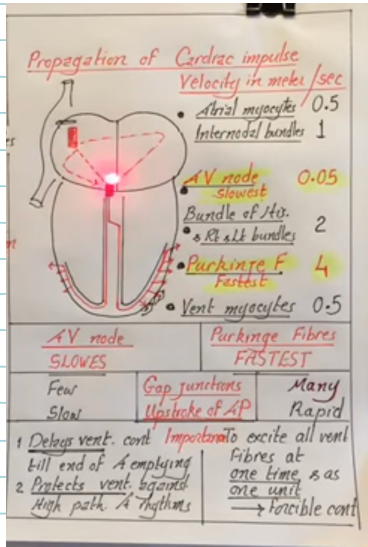 Propagation of Cardiac impulse
Velocity in meter/sec
• Atrial myocytes 0.5
Internodal bundles 1
AV node 0.05
Slowest
Bundle of His.
& Rt & Lt bundles 2
• Purkinje F 4
Fastest
• Vent myocytes 0.5
AV node
SLOWES
Purkinge Fibres
FASTEST
Few
Slow
Gap junctions
Upstroke of AP
Many
Rapid
Importan
1 Delays vent. cont
till end of A emptying
2 Protects vent. against
High path. A rhythms
To excite all vent
Fibres at
one time & as
one unit
→ forcible cont